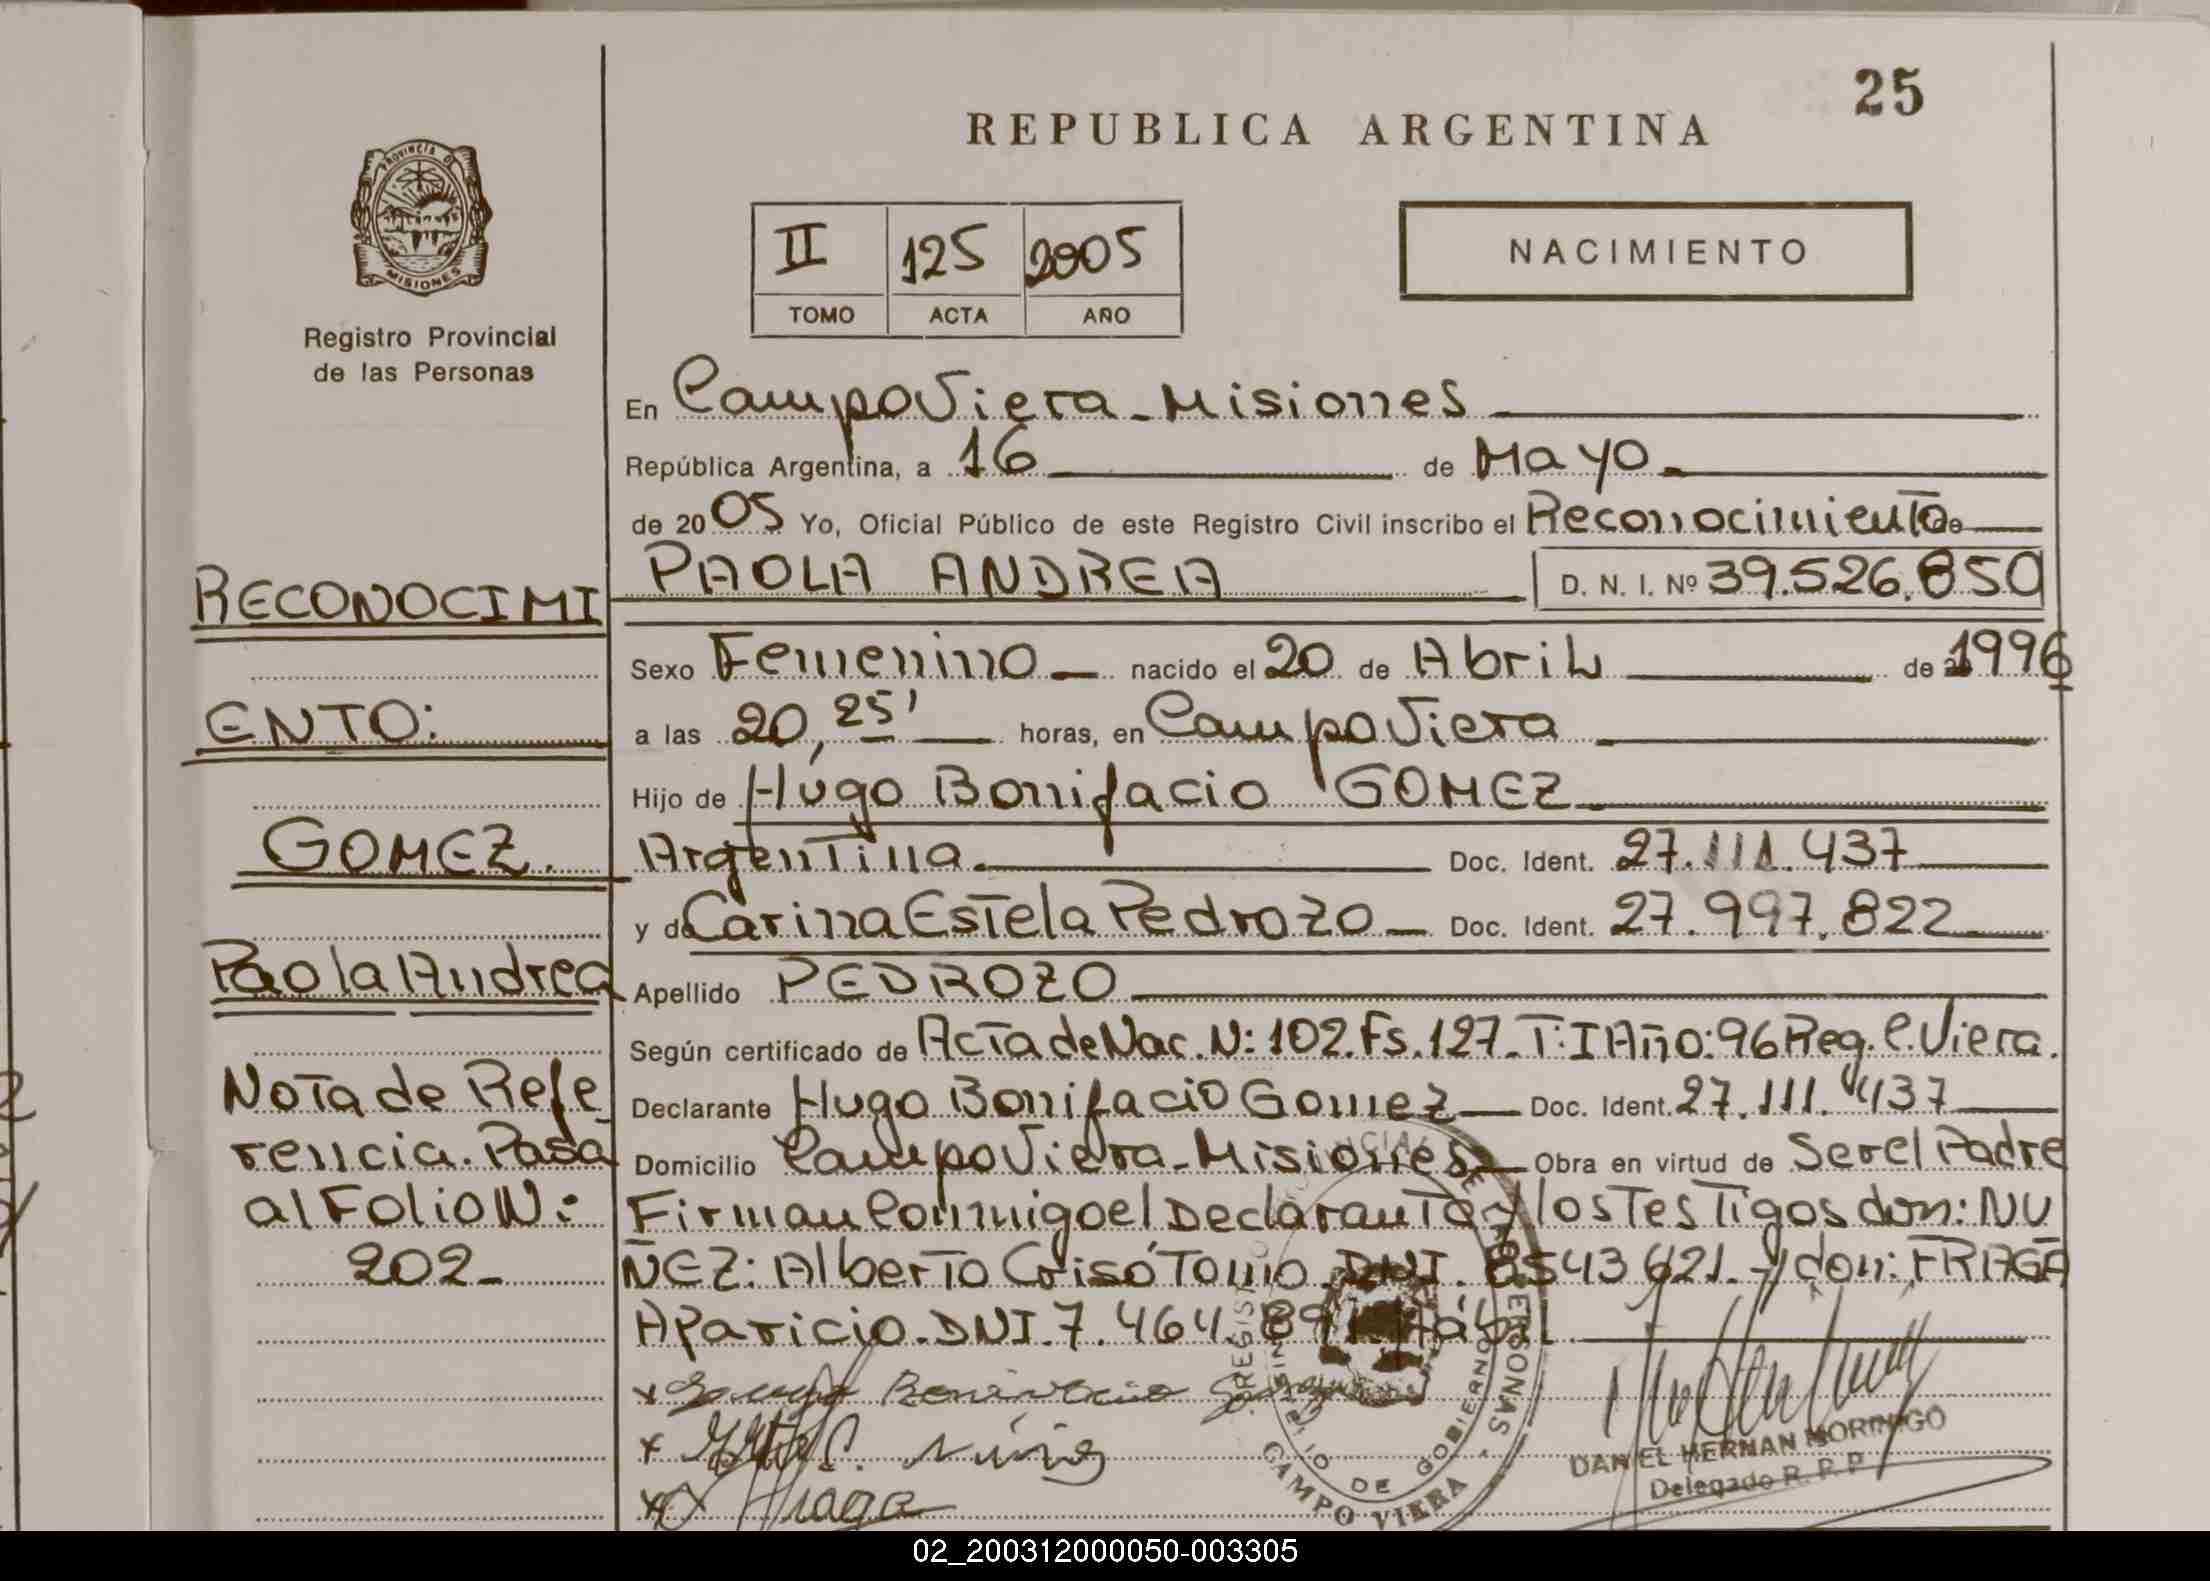 25
REPUBLICA ARGENTINA
PROVINCIA DE
MISIONES
Registro Provincial
de las Personas
II 125 2005
TOMO ACTA AÑO
NACIMIENTO
En Campo Viera - Misiones
República Argentina, a 16 de Mayo
de 2005 Yo, Oficial Público de este Registro Civil inscribo el Reconocimiento de
PAOLA ANDREA D. N. I. Nº 39.526.850
Sexo Femenino nacido el 20 de Abril de 1996
a las 20,25' horas, en Campo Viera
Hijo de Hugo Bonifacio GOMEZ
Argentina. Doc. Ident. 27.111.437
y de Carina Estela Pedrozo Doc. Ident. 27.997.822
Apellido PEDROZO
Según certificado de Acta de Nac. N: 102. Fs. 127. T: I Año: 96 Reg. C. Viera.
Declarante Hugo Bonifacio Gomez Doc. Ident. 27.111.437
Domicilio Campo Viera - Misiones Obra en virtud de Ser el Padre
Firman Conmigo el Declarante y los Testigos don: NU
ÑEZ: Alberto Crisótomo. DNI. 8543621. y don: FRAGA
Aparicio. DNI. 7.464.891. Hábil
RECONOCIMI
ENTO:
GOMEZ.
Paola Andrea
Nota de Refe
rencia. Pasa
al Folio N:
202
x Bonifacio
x C. Núñez
x Fraga
DE GOBIERNO
CAMPO VIERA
DANIEL HERNAN MORINIGO
Delegado R. P. P.
02_200312000050-003305